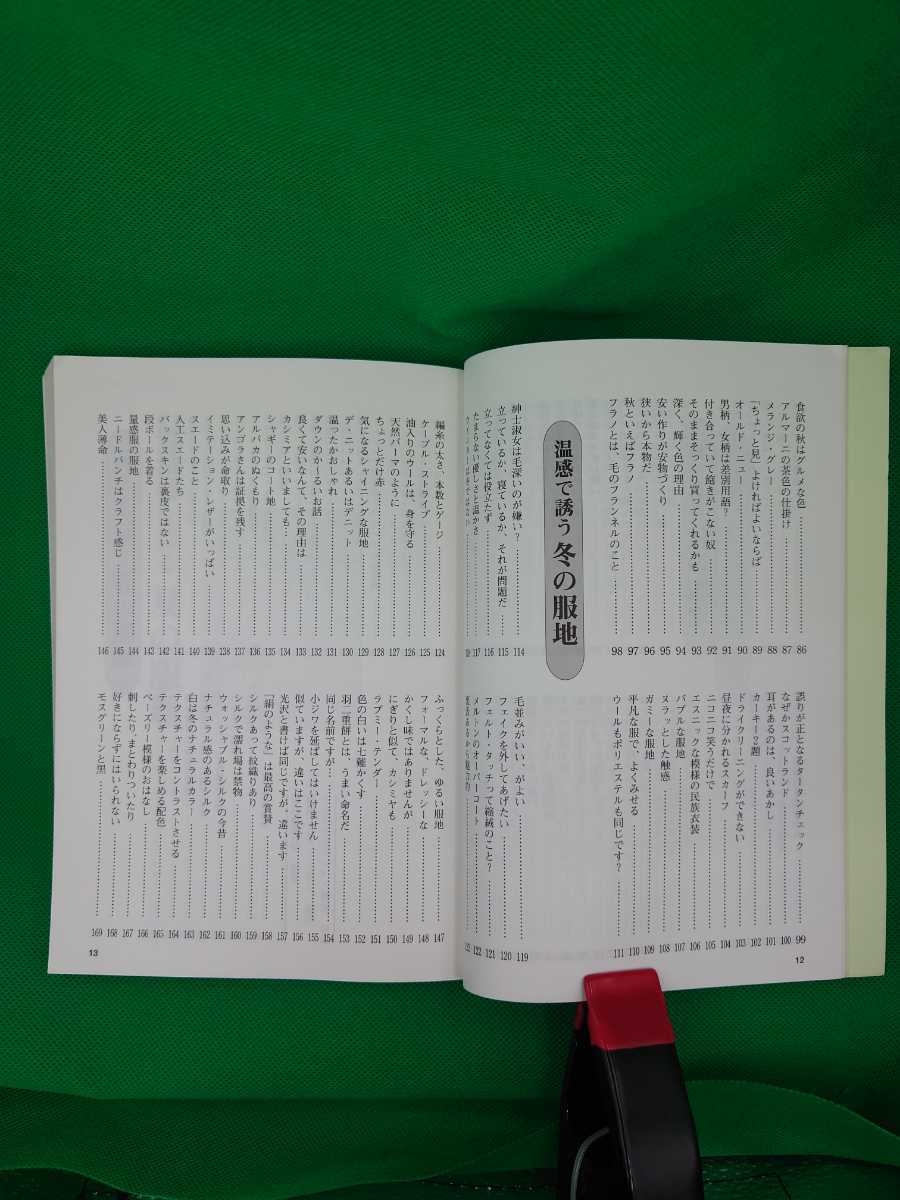 食欲の秋はグルメな色 86
アルマーニの茶色の仕掛け 87
メランジ・グレー 88
「ちょっと見」よければよいならば 89
オールド・ニュー 90
男柄、女柄は差別用語? 91
付き合っていて飽きがこない奴 92
そのままそっくり買ってくれるかも 93
深く、輝く色の理由 94
安い作りが安物づくり 95
狭いから本物だ 96
秋といえばフラノ 97
フラノとは、毛のフランネルのこと 98
誤りが正となるタータンチェック 99
なぜかスコットランド 100
耳があるのは、良いあかし 101
カーキー2題 102
ドライクリーニングができない 103
昼夜に分かれるスカーフ 104
ニコニコ笑うだけで 105
エスニックな模様の民族衣装 106
バブルな服地 107
ヌラッとした触感 108
ガミーな服地 109
平凡な服で、よくみせる 110
ウールもポリエステルも同じです? 111
温感で誘う 冬の服地
紳士淑女は毛深いのが嫌い? 114
立っているか、寝ているか、それが問題だ 115
立ってなくては役立たず 116
たまらない優しさと温かさ 117
毛並みがいい、がよい 119
フェイクを外してあげたい 120
フェルト・タッチって縮絨のこと? 121
メルトンのオーバーコート 122
12
編糸の太さ、本数とゲージ 124
ケーブル・ストライプ 125
油入りのウールは、身を守る 126
天然パーマのように 127
ちょっとだけ赤 128
気になるシャイニングな服地 129
デ・ニットあるいはデニット 130
温ったかおしゃれ 131
ダウンのかーるいお話 132
良くて安いなんて、その理由は 133
カシミアといいましても… 134
シャギーのコート地 135
アルパカのぬくもり 136
アンゴラさんは証拠を残す 137
思い込みが命取り 138
イミテーション・レザーがいっぱい 139
スエードのこと 140
人工スエードたち 141
バックスキンは裏皮ではない 142
段ボールを着る 143
量感服の服地 144
ニードルパンチはクラフト感じ 145
美人薄命 146
ふっくらとした、ゆるい服地 147
フォーマルな、ドレッシーな 148
かくし味ではありませんが 149
にぎりと似て、カシミヤも 150
ラブミー・テンダー 151
色の白いは七難かくす 152
羽二重餅とは、うまい命名だ 153
同じ名前ですが… 154
小ジワを延ばしてはいけません 155
似ていますが、違いはここです 156
光沢と書けば同じですが、違います 157
「絹のような」は最高の賞賛 158
シルクあって紋織りあり 159
シルクで濡れ場は禁物 160
ウォッシャブル・シルクの今昔 161
ナチュラル感のあるシルク 162
白は冬のナチュラルカラー 163
テクスチャーをコントラストさせる 164
テクスチャーを楽しめる配色 165
ペーズリー模様のおはなし 166
刺したり、まとわりついたり 167
好きにならずにはいられない 168
モスグリーンと黒 169
13